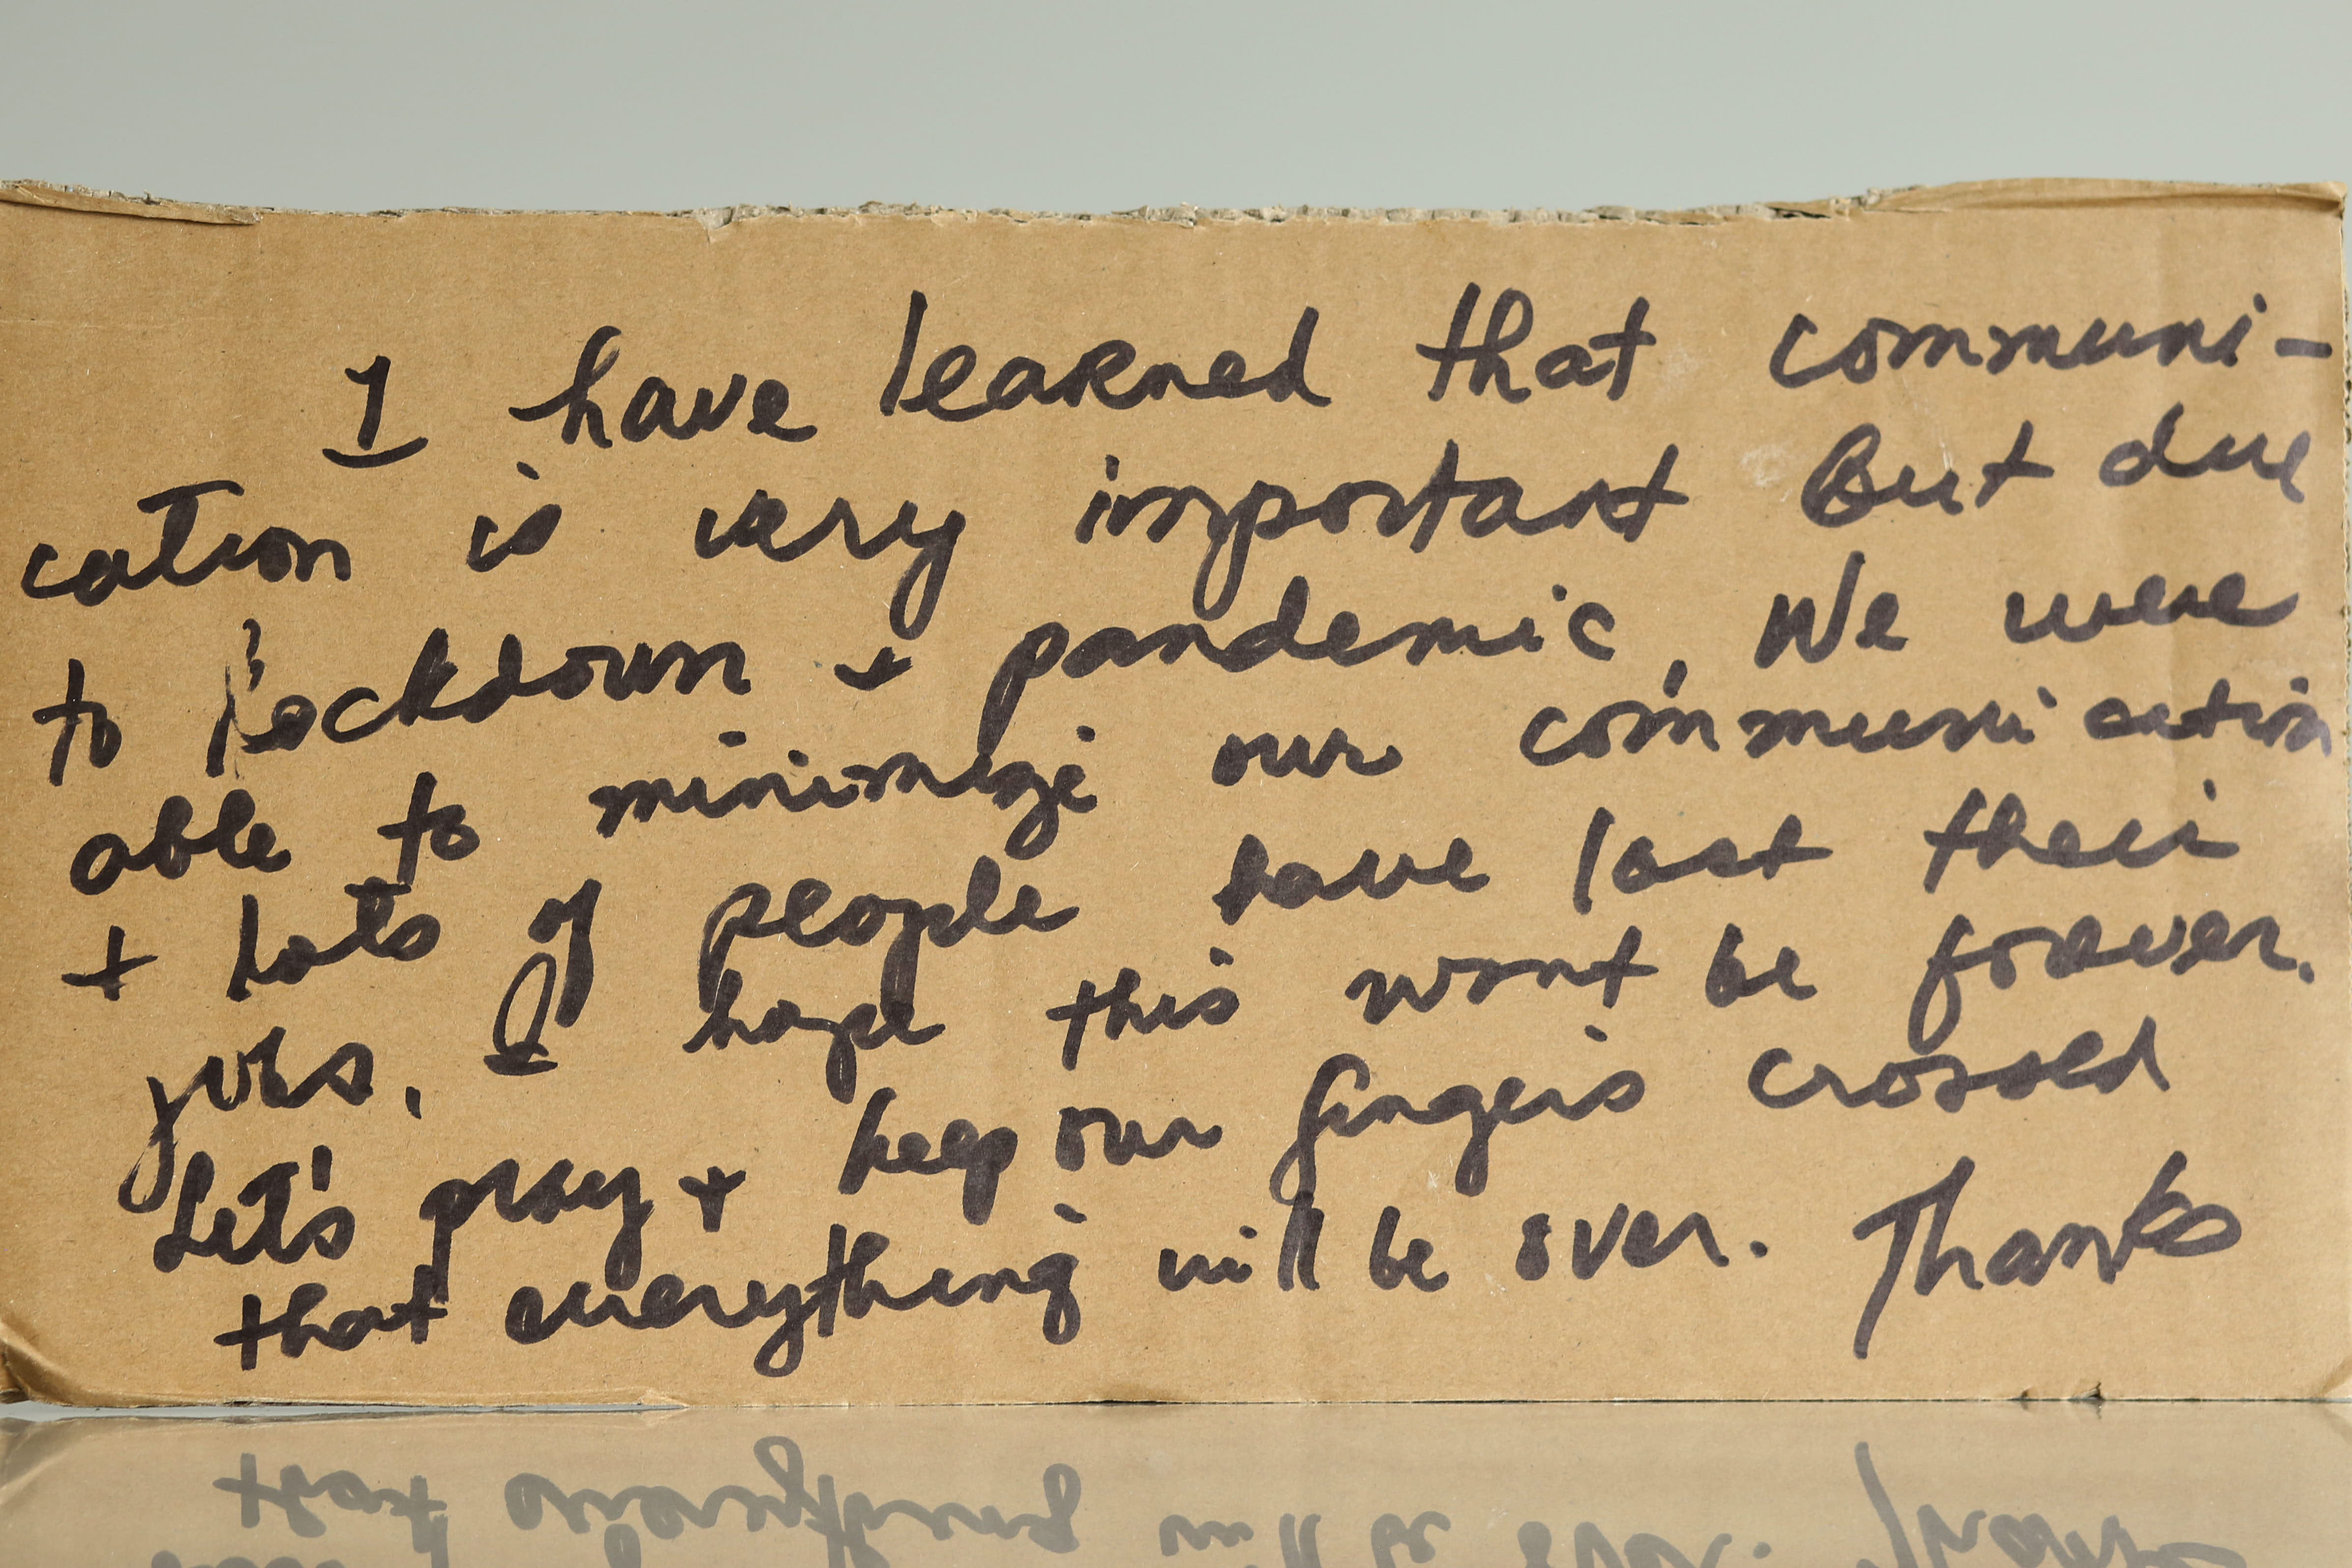 I have learned that communi-
cation is very important But due
to lockdown + pandemic, We were
able to minimize our communication
+ lots of people have lost their
jobs. I hope this wont be forever.
Let's pray + keep our fingers crossed
that everything will be over. Thanks